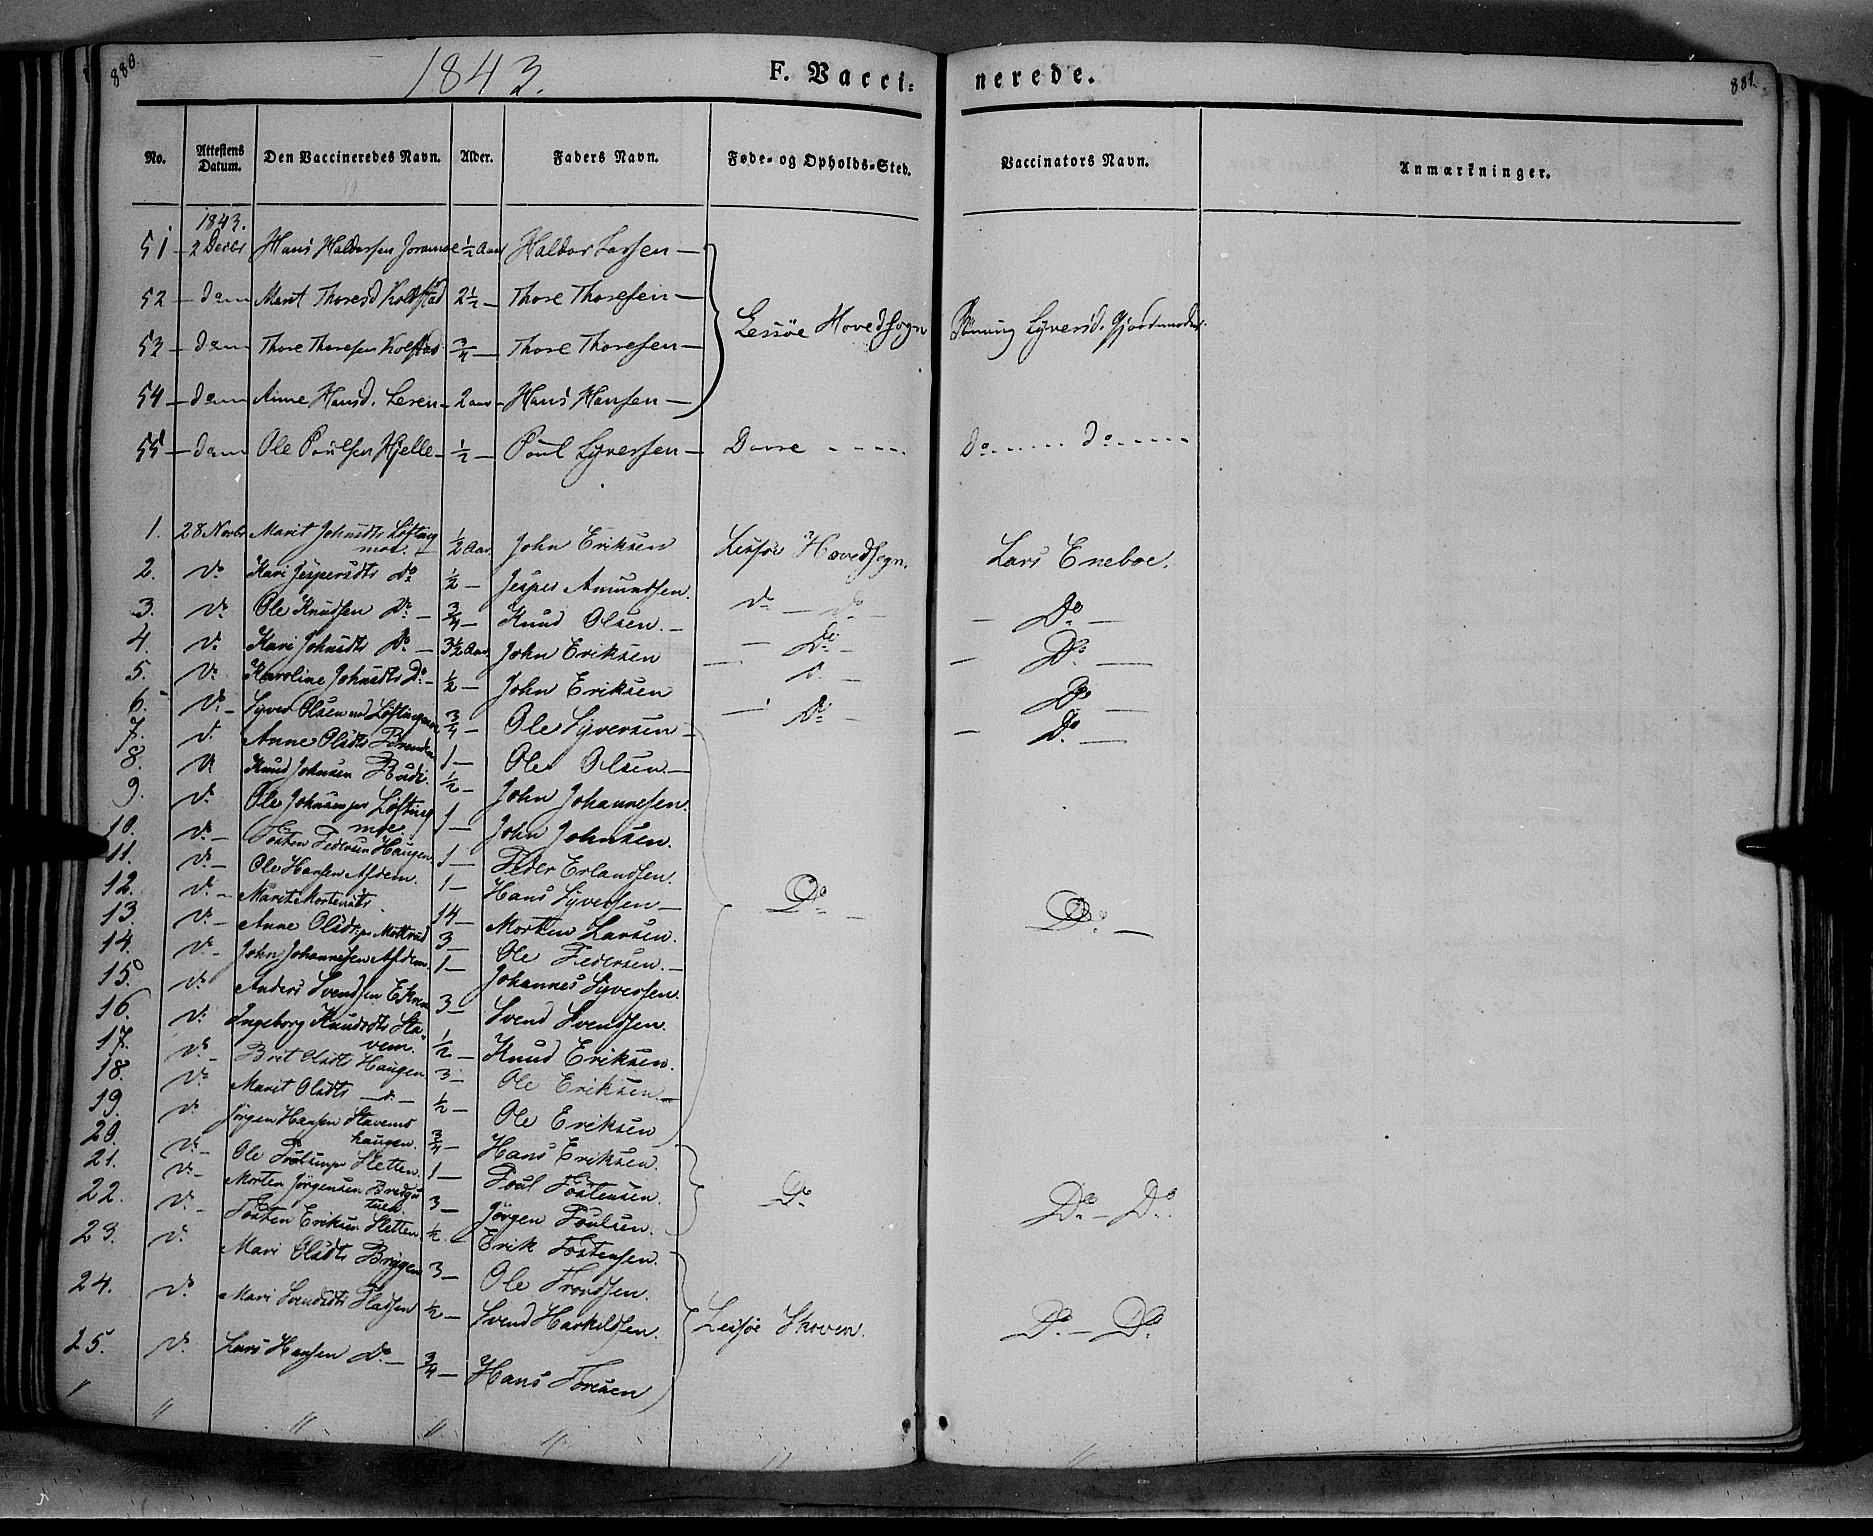 880.
1843.
F. Vacci=
nerede.
881.
No. Attestens Datum. Den Vaccineredes Navn. Alder. Faders Navn. Føde- og Opholds-Sted. Vaccinators Navn. Anmærkninger.
1843.
51 - 2 Decbr Hans Haldorsen Joramoe ½ Aar Haldor Larsen -
52 - dom Marit Thoresd Kolstad 2½ - Thore Thoresen - Lessöe Hovedsogn Syversd. Gjordemoder.
53 - dom Thore Thoresen Kolstad ¾ - Thore Thoresen -
54 - dom Anne Hansd. Lesen - 2 aar - Hans Hansen -
55 - dom Ole Poulsen Hjelle - ½ - Poul Syversen - Dovre - - - - Do - - - - do - - - -
1. 28 Novbr Marit Johnsdtr Löfting
moe. ½ Aar John Eriksen Lessöe Hovedsogn. Lars Eneboe.
2. do Kari Jespersdtr Do ½ - Jesper Amundsen. do - do - Do
3. do Ole Knudsen Do - ¾ - Knud Olsen. - - Do -
4. do Kari Johnsdtr Do - 3½ Aar John Eriksen - Do - - Do -
5. do Karoline Johnsdtr Do - ½ - John Eriksen
6. do - Syver Olsen Löftingmoe ¾ - Ole Syversen - - Do - Do -
7. do Anne Olsdtr Brenden 1 - Ole Olsen. - - Do -
8. do Knud Johnsen Rudi. ½ - John Johannesen.
9. do Ole Johnsen Löfting
moe. 1 - John Johnsen.
10. do - Tosten Pedersen Haugen 1 - Peder Erlandsen.
11. do - Ole Hansen Afdem. 1 - Hans Syversen -
12. do - Marit Mortensdtr 14 - Morten Larsen. Do - Do -
13. do Anne Olsdtr 3 - Ole Pedersen. -
14. do - John Johannesen Afdem. 1 - Johannes Syversen.
15. do Anders Svendsen Ekren 3 - Svend Svendsen.
16. do Ingeborg Knudsdtr Sta-
vem. ½ - Knud Eriksen.
17. do - Brit Olsdtr Haugen 3 - Ole Eriksen -
18. do Marit Olsdtr - d - ½ - Ole Eriksen
19. do Jörgen Hansen Stavems
haugen. ¾ - Hans Eriksen.
20. do - Ole Sletten. 1 - Poul Tostensen. - Do
21. do - Morten Jörgensen 3 - Jörgen Poulsen. Do - Do.
22. do - Tosten Eriksen Sletten. ½ - Erik Tostensen.
23. do Mari Olsdtr Bryggen 3 - Ole Trondsen.
24. do Mari Svendsdtr Pladsen ½ - Svend Harkildsen. Lessöe Skoven. Do - Do.
25. do Lars Hansen Do - ¾ - Hans Toresen
" " " " " " "